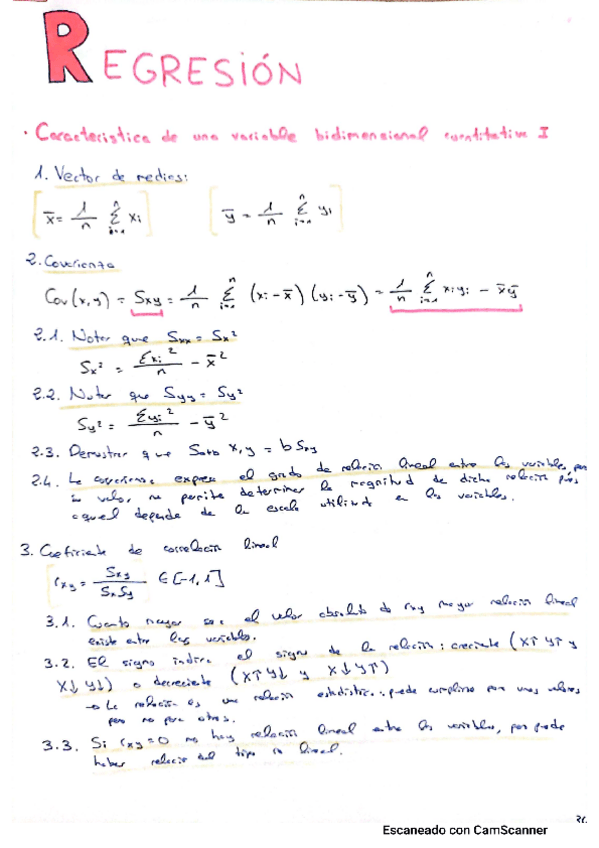 REGRESIÓN
· Característica de una variable bidimensional cuantitativa I
1. Vector de medias:
x̄ = 1/n Σ_{i=1}^{n} xi    ȳ = 1/n Σ_{i=1}^{n} yi
2. Covarianza
Cov(x,y) = Sxy = 1/n Σ_{i=1}^{n} (xi - x̄)(yi - ȳ) = 1/n Σ_{i=1}^{n} xi yi - x̄ȳ
2.1. Notar que Sxx = Sx²
Sx² = Σxi²/n - x̄²
2.2. Notar que Syy = Sy²
Sy² = Σyi²/n - ȳ²
2.3. Demostrar que x,y = bSxy
2.4. La covarianza expresa el grado de relación lineal entre las variables, pero
su valor, no permite determinar la magnitud de dicha relación pues
aquel depende de la escala utilizada en las variables.
3. Coeficiente de correlación lineal
rxy = Sxy/SxSy ∈ [-1,1]
3.1. Cuanto mayor sea el valor absoluto de rxy mayor relación lineal
existe entre las variables.
3.2. El signo indica el signo de la relación: creciente (X↑ Y↑ y
X↓ Y↓) o decreciente (X↑ Y↓ y X↓ Y↑)
→ La relación es una relación estadística: puede cumplirse por unos valores
pero no para otros.
3.3. Si rxy=0 no hay relación lineal entre las variables, pero puede
haber relación del tipo no lineal.
Escaneado con CamScanner